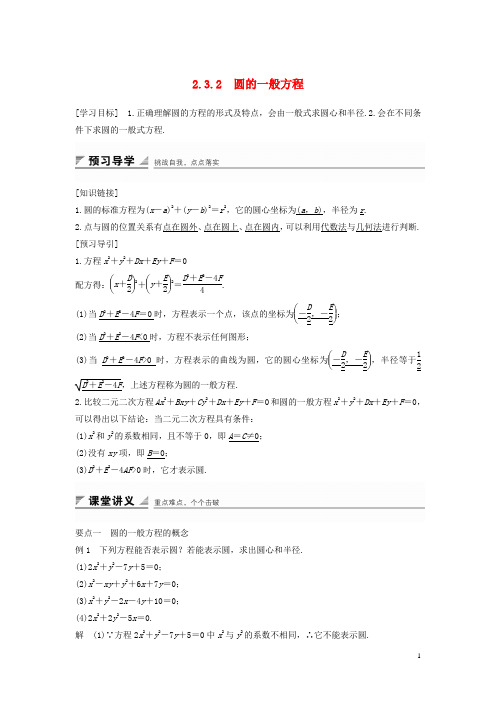 2.3.2 圆的一般方程
[学习目标] 1.正确理解圆的方程的形式及特点，会由一般式求圆心和半径.2.会在不同条
件下求圆的一般式方程.
预习导学 挑战自我，点点落实
[知识链接]
1.圆的标准方程为(x－a)²＋(y－b)²＝r²，它的圆心坐标为(a，b)，半径为 r.
2.点与圆的位置关系有点在圆外、点在圆上、点在圆内，可以利用代数法与几何法进行判断.
[预习导引]
1.方程 x²＋y²＋Dx＋Ey＋F＝0
配方得：(x＋D/2)²＋(y＋E/2)²＝(D²＋E²－4F)/4.
(1)当 D²＋E²－4F＝0 时，方程表示一个点，该点的坐标为(－D/2，－E/2)；
(2)当 D²＋E²－4F<0 时，方程不表示任何图形；
(3)当 D²＋E²－4F>0 时，方程表示的曲线为圆，它的圆心坐标为(－D/2，－E/2)，半径等于1/2
√(D²＋E²－4F)，上述方程称为圆的一般方程.
2.比较二元二次方程 Ax²＋Bxy＋Cy²＋Dx＋Ey＋F＝0 和圆的一般方程 x²＋y²＋Dx＋Ey＋F＝0，
可以得出以下结论：当二元二次方程具有条件：
(1)x²和 y²的系数相同，且不等于 0，即 A＝C≠0；
(2)没有 xy 项，即 B＝0；
(3)D²＋E²－4AF>0 时，它才表示圆.
课堂讲义 重点难点，个个击破
要点一 圆的一般方程的概念
例 1 下列方程能否表示圆？若能表示圆，求出圆心和半径.
(1)2x²＋y²－7y＋5＝0；
(2)x²－xy＋y²＋6x＋7y＝0；
(3)x²＋y²－2x－4y＋10＝0；
(4)2x²＋2y²－5x＝0.
解 (1)∵方程 2x²＋y²－7y＋5＝0 中 x²与 y²的系数不相同，∴它不能表示圆.
1